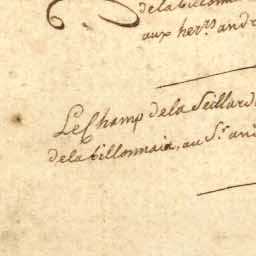 dela billonna
aux her.rs andr
Le Champ de la Seillard
de la billonnaia, au S.r and